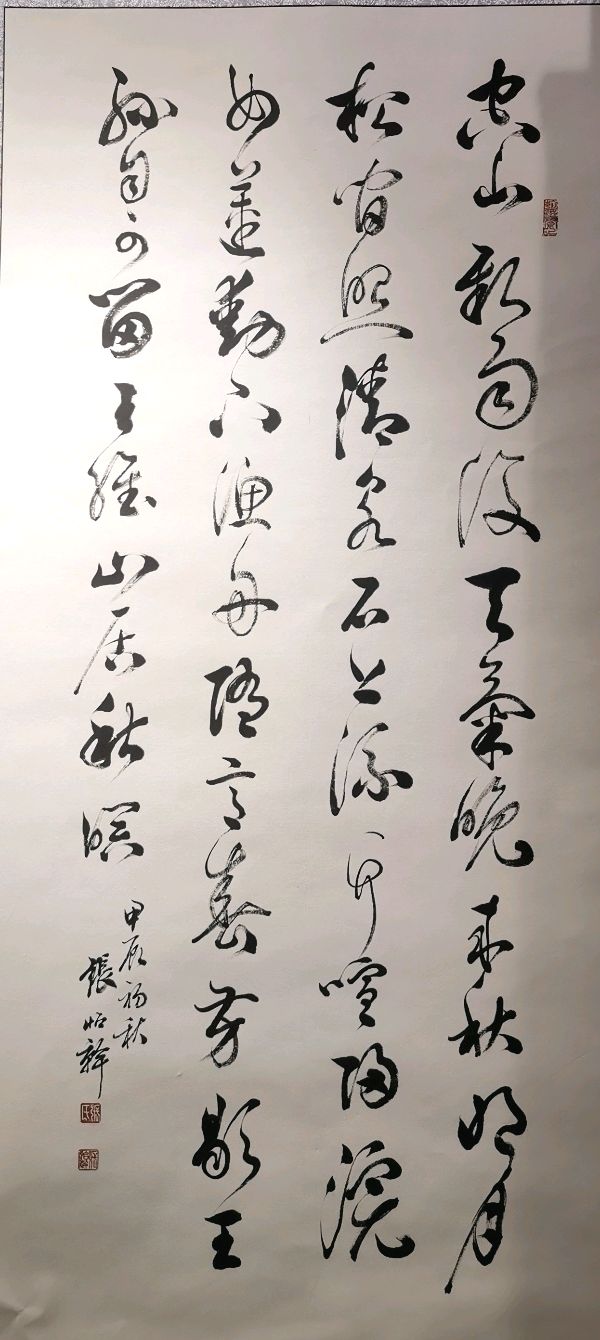 空山新雨後天氣晚來秋明月
松間照清泉石上流竹喧歸浣
女蓮動下漁舟隨意春芳歇王
孫自可留王維山居秋暝
甲辰初秋
張幹